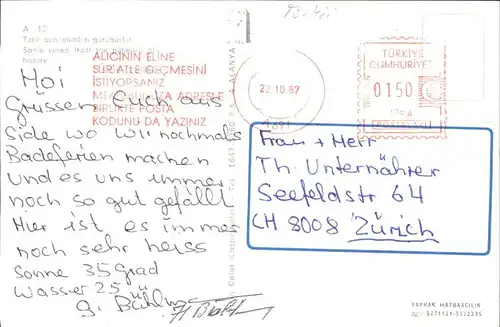 A 12
Tarih denizinden görünüşler
Some views from the
Türkei
ALICININ ELİNE
SÜR'ATLE GEÇMESİNİ
İSTİYORSANIZ
ADRESLE
BİRLİKTE POSTA
KODUNU DA YAZINIZ
22.10.87
TÜRKİYE
CUMHURİYETİ
0150
Moi
Grüsse Euch aus
Side wo wir nochmals
Badeferien machen
und es uns immer
noch so gut gefällt
Hier ist es immer
noch sehr heiss
Sonne 35 Grad
Wasser 25
Frau + Herr
Th. Unternährer
Seefeldstr 64
CH 8008 Zürich
Color Kartpostal
ALANYA
YAPRAK MATBAACILIK